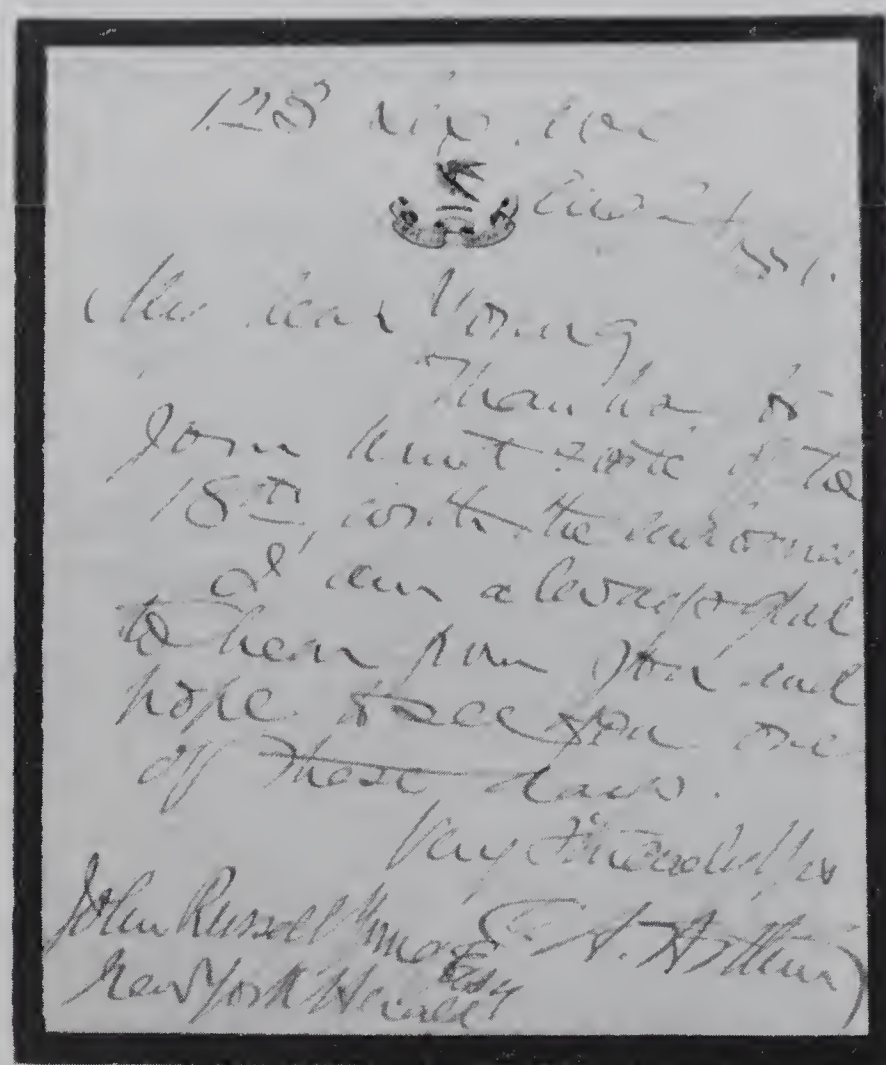 123 Lex. Ave
My dear Young,
Thanks for
your kind note of the
18th, with the enclosures.
I am always glad
to hear from you and
hope to see you one
of these days.
Very Faithfully yrs
C. A. Arthur
John Russell Young Esq
New York Herald